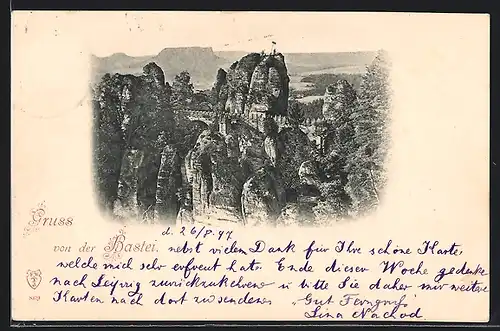 Gruss
von der Bastei.
d. 26/8. 97
nebst vielem Dank für Ihre schöne Karte,
welche mich sehr erfreut hat. Ende dieser Woche gedenke
nach Leipzig zurückzukehren u bitte Sie daher mir weitere
Karten nach dort zu senden.
"Gut Ferngruß"
Lina Nachod